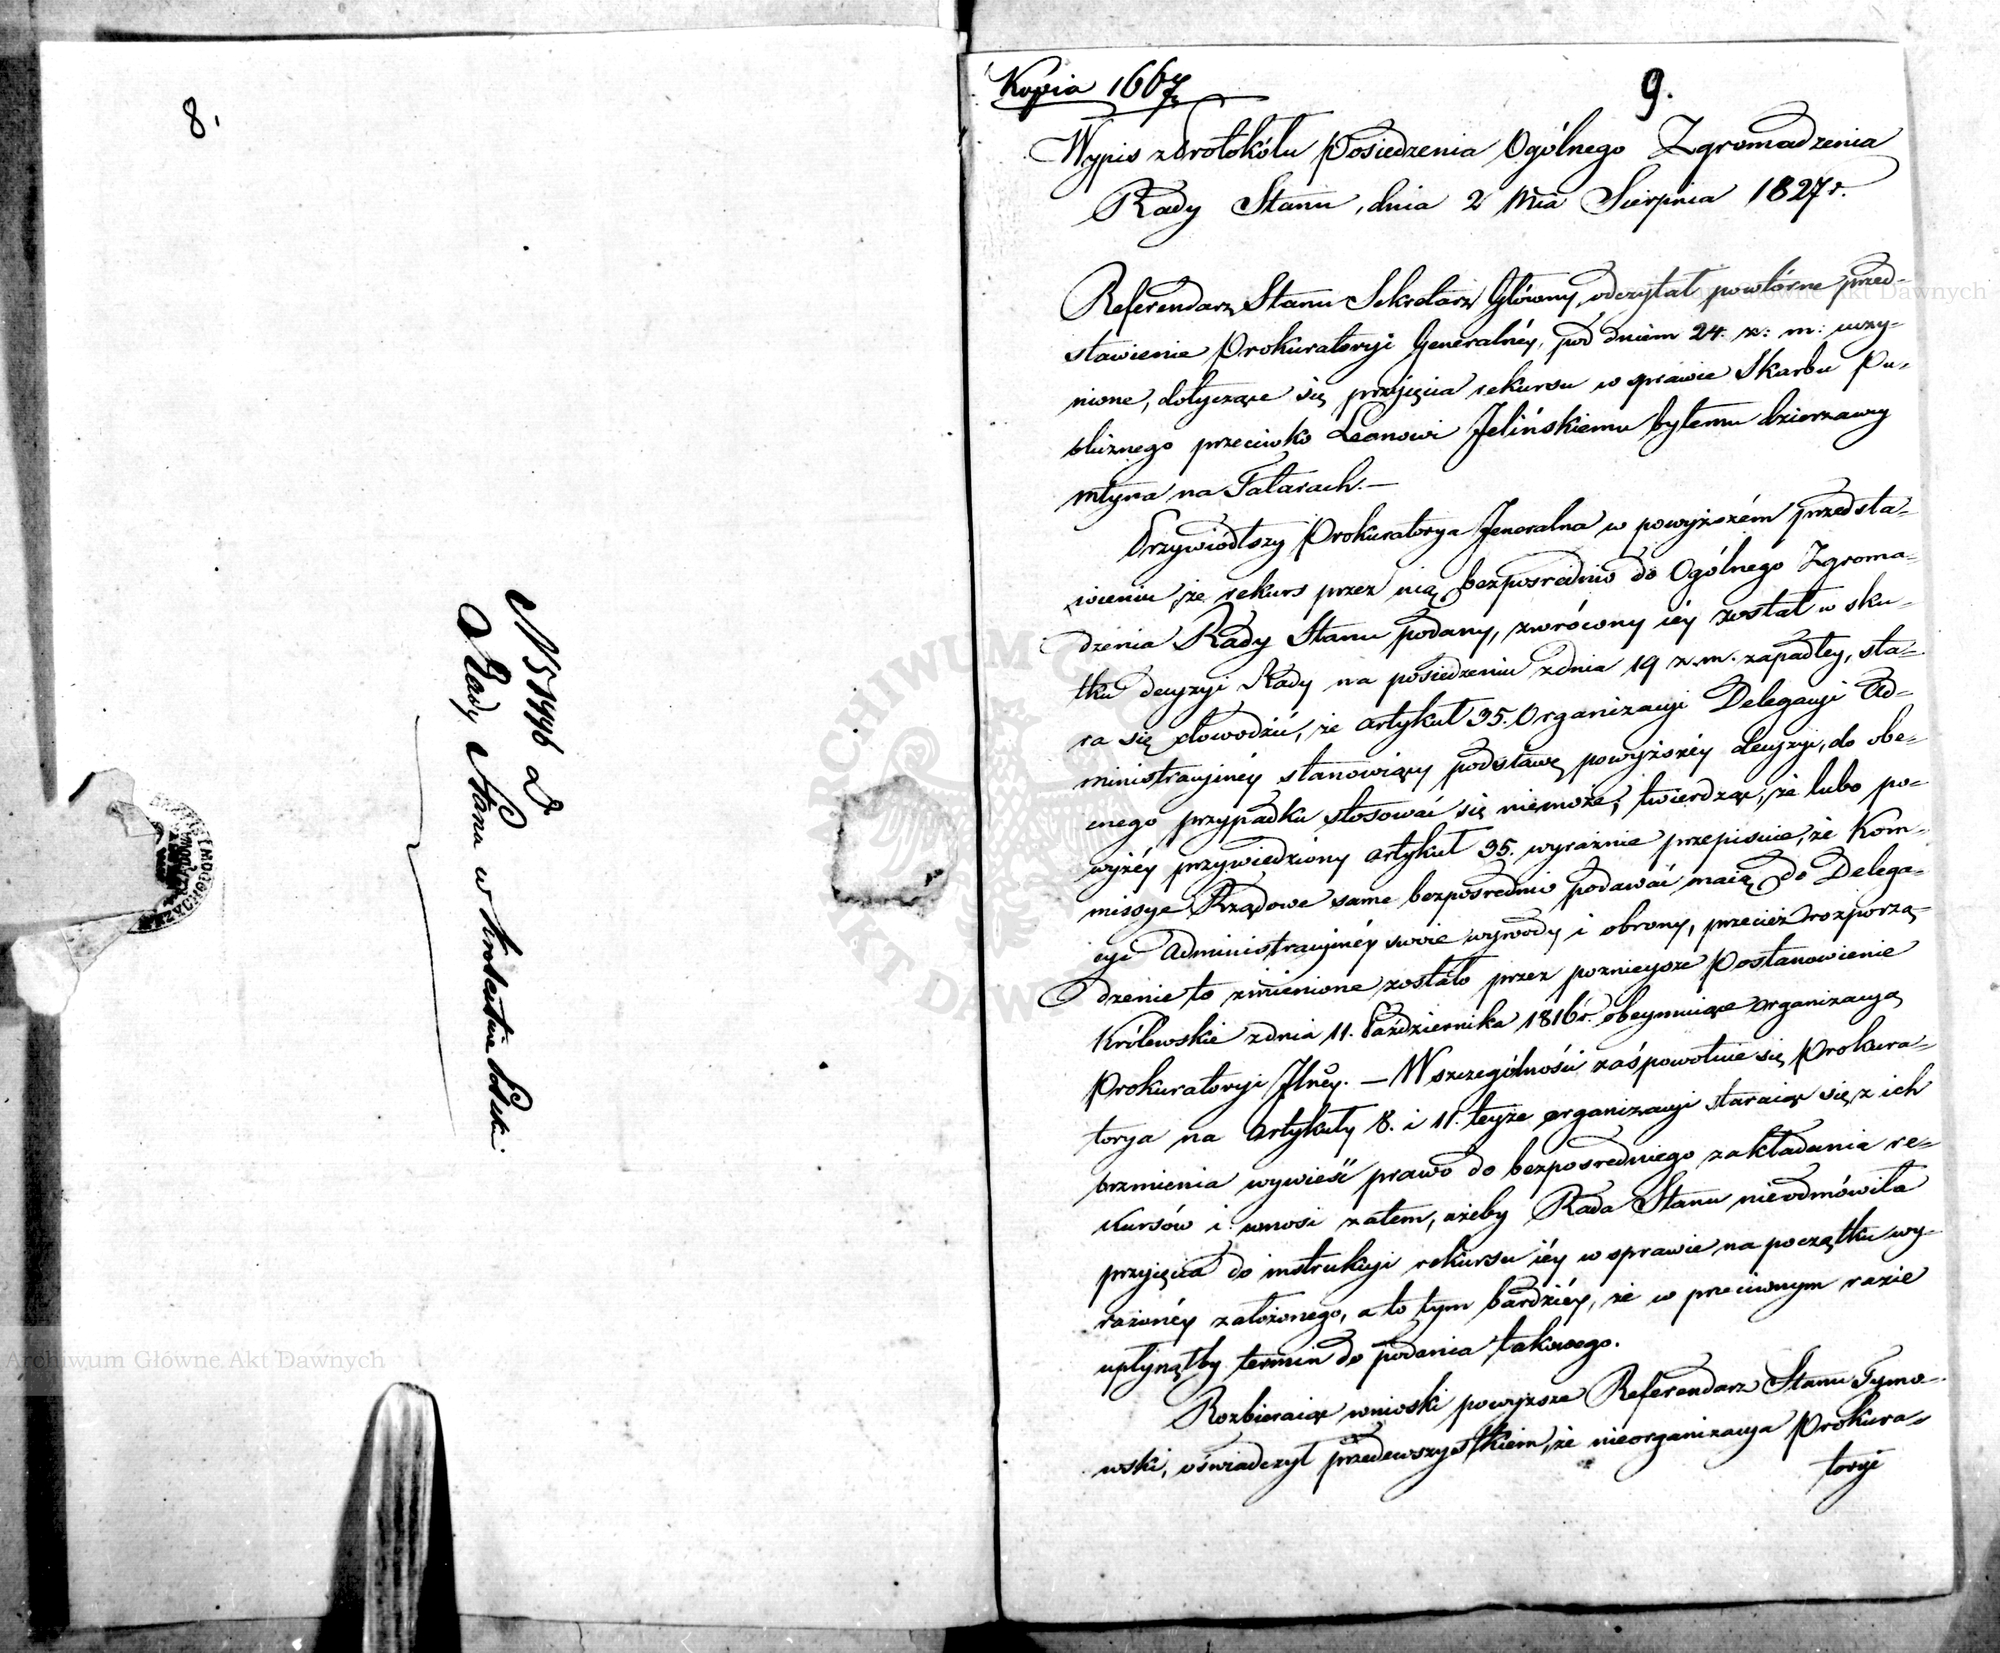 8.
N 51776 D
Rady Stanu w Królestwie Polski.
Kopia 1667
9.
Wypis z Protokółu Posiedzenia Ogólnego Zgromadzenia
Rady Stanu, dnia 2 Mca Sierpnia 1827 r.
Referendarz Stanu Sekretarz Główny, odczytał powtórne przed-
stawienie Prokuratoryi Generalnéy, pod dniem 24. z. m. uczy-
nione, dotyczące się przyjęcia rekursu w sprawie Skarbu Pu-
blicznego przeciwko Leonowi Jelińskiemu byłemu dzierzawcy
młyna na Tatarach.—
Przywiódłszy Prokuratorya Jeneralna w powyższém przedsta-
wieniu, że rekurs przez nią bezposrednio do Ogólnego Zgroma-
dzenia Rady Stanu podany, zwrócony iéy został w sku-
tku decyzyi Rady na posiedzeniu z dnia 19 z. m. zapadłey, sta-
ra się dowodzić, że artykuł 35. Organizacyi Delegacyi Ad-
ministracyinéy stanowiący podstawę powyższéy decyzyi, do obe-
cnego przypadku stosować się niemoże, twierdząc, że lubo po-
wyżéy przywiedziony artykuł 35. wyraźnie przepisuie, że Kom-
missye Rządowe same bezpośrednio podawać maią do Delega-
cyi Administracyinéy swoie wywody i obrony, przecież rozporzą-
dzenie to zmienione zostało przez poznieysze Postanowienie
Królewskie z dnia 11. Października 1816 r. obeymuiące organizacyą
Prokuratoryi Jlnéy. — W szczególności zaś powołuie się Prokura-
torya na artykuły 8. i 11. teyże organizacyi staraiąc się z ich
brzmienia wywieść prawo do bezposredniego zakładania re-
kursów i wnosi zatem, ażeby Rada Stanu nieodmówiła
przyjęcia do instrukcyi rekursu iéy w sprawie na początku wy-
rażonéy założonego, a to tym bardziéy, że w przeciwnym razie
upłynąłby termin do podania takowego.
Rozbieraiąc wnioski powyższe Referendarz Stanu Tymo-
wski, oświadczył przedewszystkiem, że nieorganizacya Prokura-
toryi
Archiwum Główne Akt Dawnych
ARCHIWUM GŁÓWNE AKT DAWNYCH